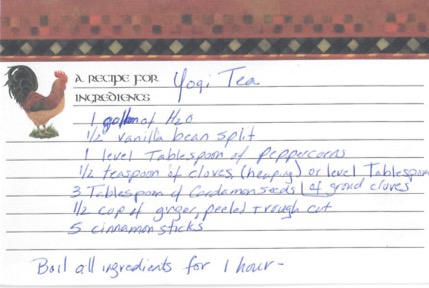 A RECIPE FOR Yogi Tea
INGREDIENTS
1 gallon of H2O
1/2 vanilla bean split
1 level Tablespoon of peppercorns
1/2 teaspoon of cloves (heaping) or level Tablespoon
3 Tablespoon of Cardamon seeds | of grond cloves
1/2 cup of ginger, peeled + rough cut
5 cinnamon sticks
Boil all ingredients for 1 hour -